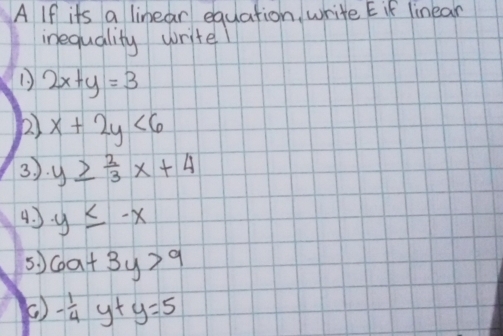 A If its a linear equation, write E if linear
inequality write I
1) 2x+y = 3
2) x + 2y <6
3.) y ≥ 2/3 x + 4
4.) y ≤ -x
5.) 6a + 3y > 9
6) -1/4 y + y = 5